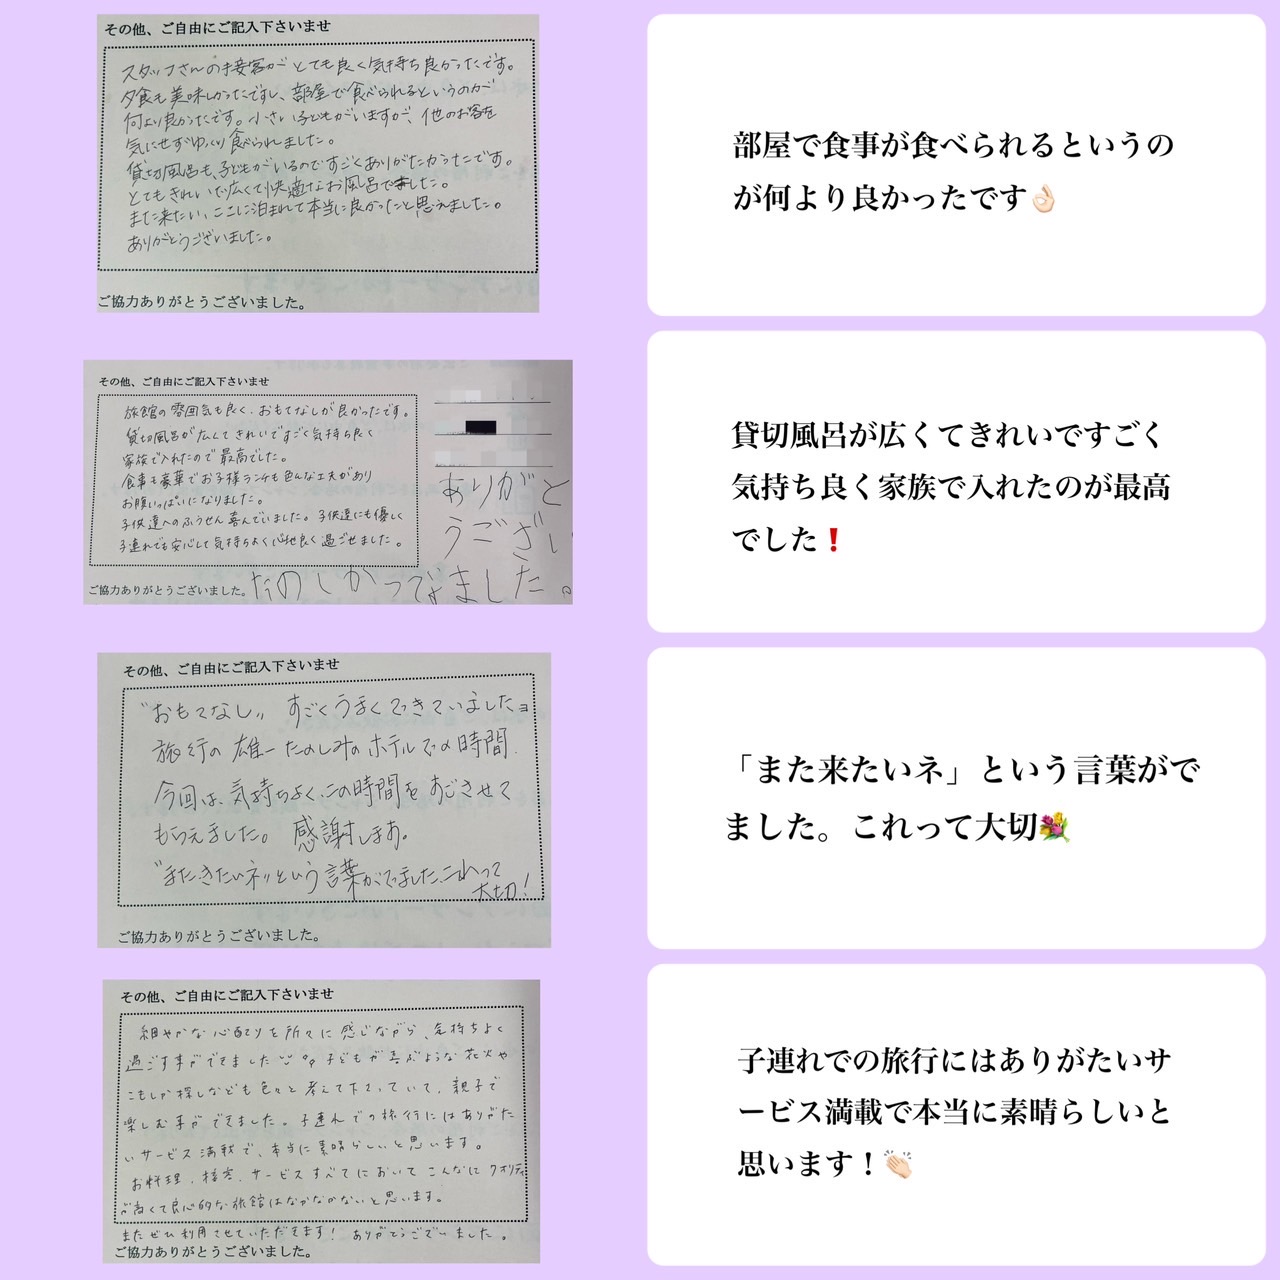 その他、ご自由にご記入下さいませ
スタッフさんの接客がとても良く気持ち良かったです。
夕食も美味しかったですし、部屋で食べられるというのが
何より良かったです。小さい子どもがいますが、他のお客を
気にせずゆっくり食べられました。
貸切風呂も、子どもがいるのですごくありがたかったです。
とてもきれいで広くて快適なお風呂でした。
また来たい、ここに泊まれて本当に良かったと思えました。
ありがとうございました。
ご協力ありがとうございました。
部屋で食事が食べられるというの
が何より良かったです👌🏻
その他、ご自由にご記入下さいませ
旅館の雰囲気も良く、おもてなしが良かったです。
貸切風呂が広くてきれいですごく気持ち良く
家族で入れたので最高でした。
食事も豪華でお子様ランチも色んな工夫があり
お腹いっぱいになりました。
子供達へのふうせん喜んでいました。子供達にも優しく
子連れでも安心して気持ちよく心地良く過ごせました。
ありがと
うござい
ました。
たのしかったです
ご協力ありがとうございました。
貸切風呂が広くてきれいですごく
気持ち良く家族で入れたのが最高
でした❗
その他、ご自由にご記入下さいませ
〝おもてなし〟すごくうまくできていましたヨ
旅行の雄一たのしみのホテルでの時間
今回は、気持ちよく、この時間をすごさせて
もらえました。感謝します。
〝またきたいネ〟という言葉がでました、これって
大切!
ご協力ありがとうございました。
「また来たいネ」という言葉がで
ました。これって大切💐
その他、ご自由にご記入下さいませ
細やかな心配りを所々に感じながら、気持ちよく
過ごす事ができました 子どもが喜ぶような花火や
こもしか探しなども色々と考えて下さっていて、親子で
楽しむ事ができました。子連れでの旅行にはありがた
いサービス満載で、本当に素晴らしいと思います。
お料理、接客、サービスすべてにおいてこんなにクオリティ
が高くて良心的な旅館はなかなかないと思います。
またぜひ利用させていただきます! ありがとうございました。
ご協力ありがとうございました。
子連れでの旅行にはありがたいサ
ービス満載で本当に素晴らしいと
思います!👏🏻